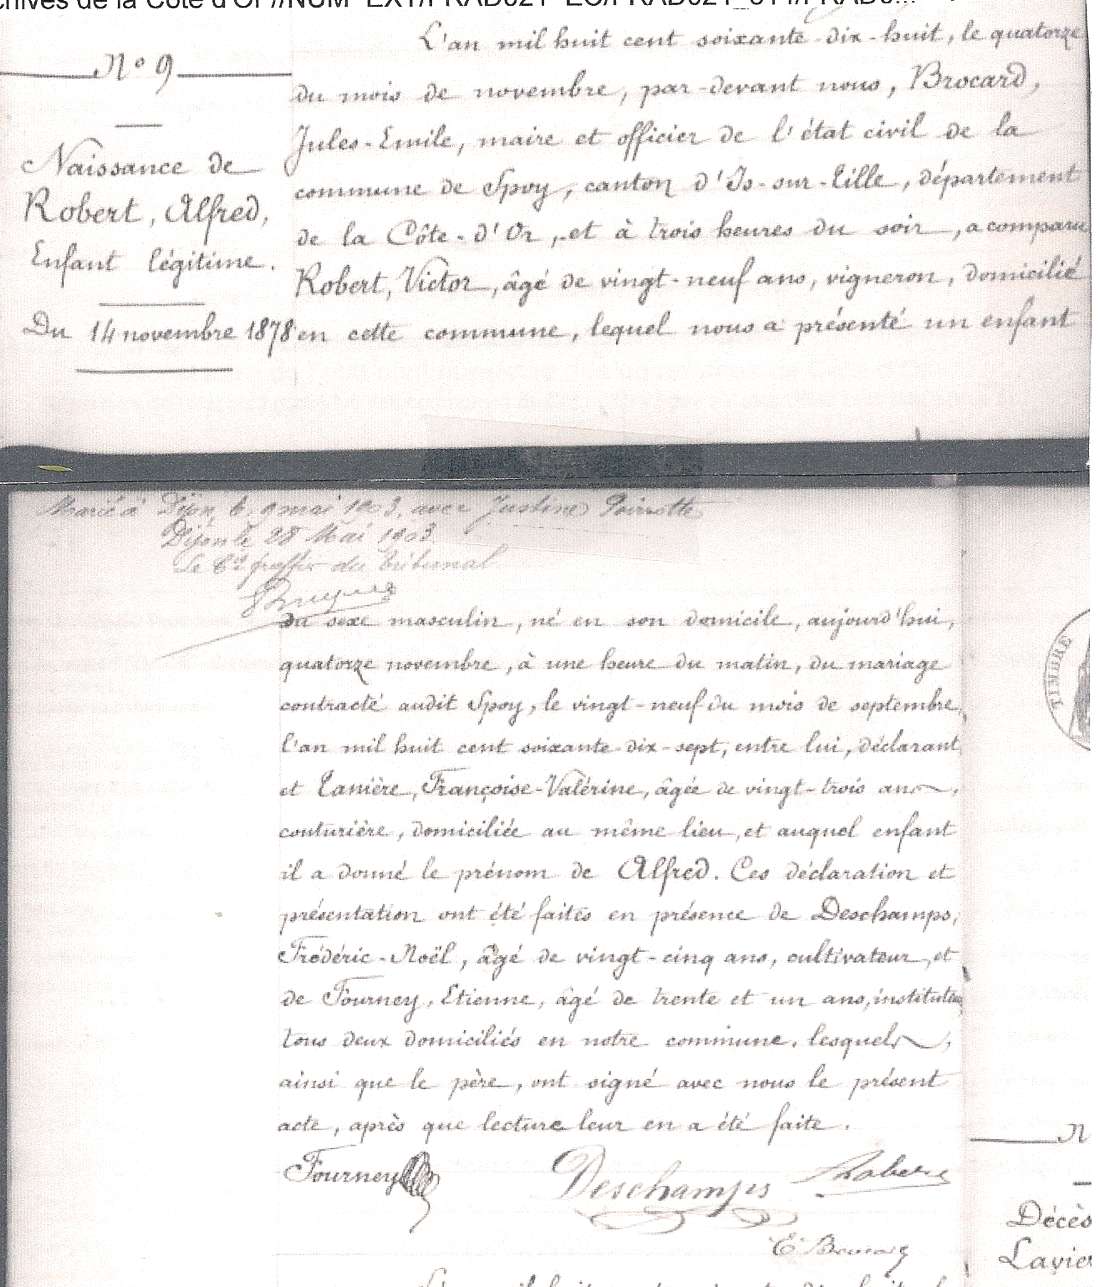 chives de la Côte d'Or //NUM_EXT/FRAD021_EC/FRAD021_
N° 9
Naissance de
Robert, Alfred,
Enfant légitime.
Du 14 novembre 1878
L'an mil huit cent soixante-dix-huit, le quatorze
du mois de novembre, par-devant nous, Brocard,
Jules-Emile, maire et officier de l'état civil de la
commune de Spoy, canton d'Is-sur-Tille, département
de la Côte-d'Or, et à trois heures du soir, a comparu
Robert, Victor, âgé de vingt-neuf ans, vigneron, domicilié
en cette commune, lequel nous a présenté un enfant
Marié à Dijon le 9 mai 1903, avec Justine
Dijon le 28 Mai 1903
Le greffier du tribunal
du sexe masculin, né en son domicile, aujourd'hui,
quatorze novembre, à une heure du matin, du mariage
contracté audit Spoy, le vingt-neuf du mois de septembre
l'an mil huit cent soixante-dix-sept, entre lui, déclarant
et Lanière, Françoise-Valérine, âgée de vingt-trois ans,
couturière, domiciliée au même lieu, et auquel enfant
il a donné le prénom de Alfred. Ces déclaration et
présentation ont été faites en présence de Deschamps,
Frédéric-Noël, âgé de vingt-cinq ans, cultivateur, et
de Fourney, Etienne, âgé de trente et un ans, instituteur
tous deux domiciliés en notre commune, lesquels,
ainsi que le père, ont signé avec nous le présent
acte, après que lecture leur en a été faite.
Fourney Deschamps Robert
E Brocard
TIMBRE
N
Décès
Lavier